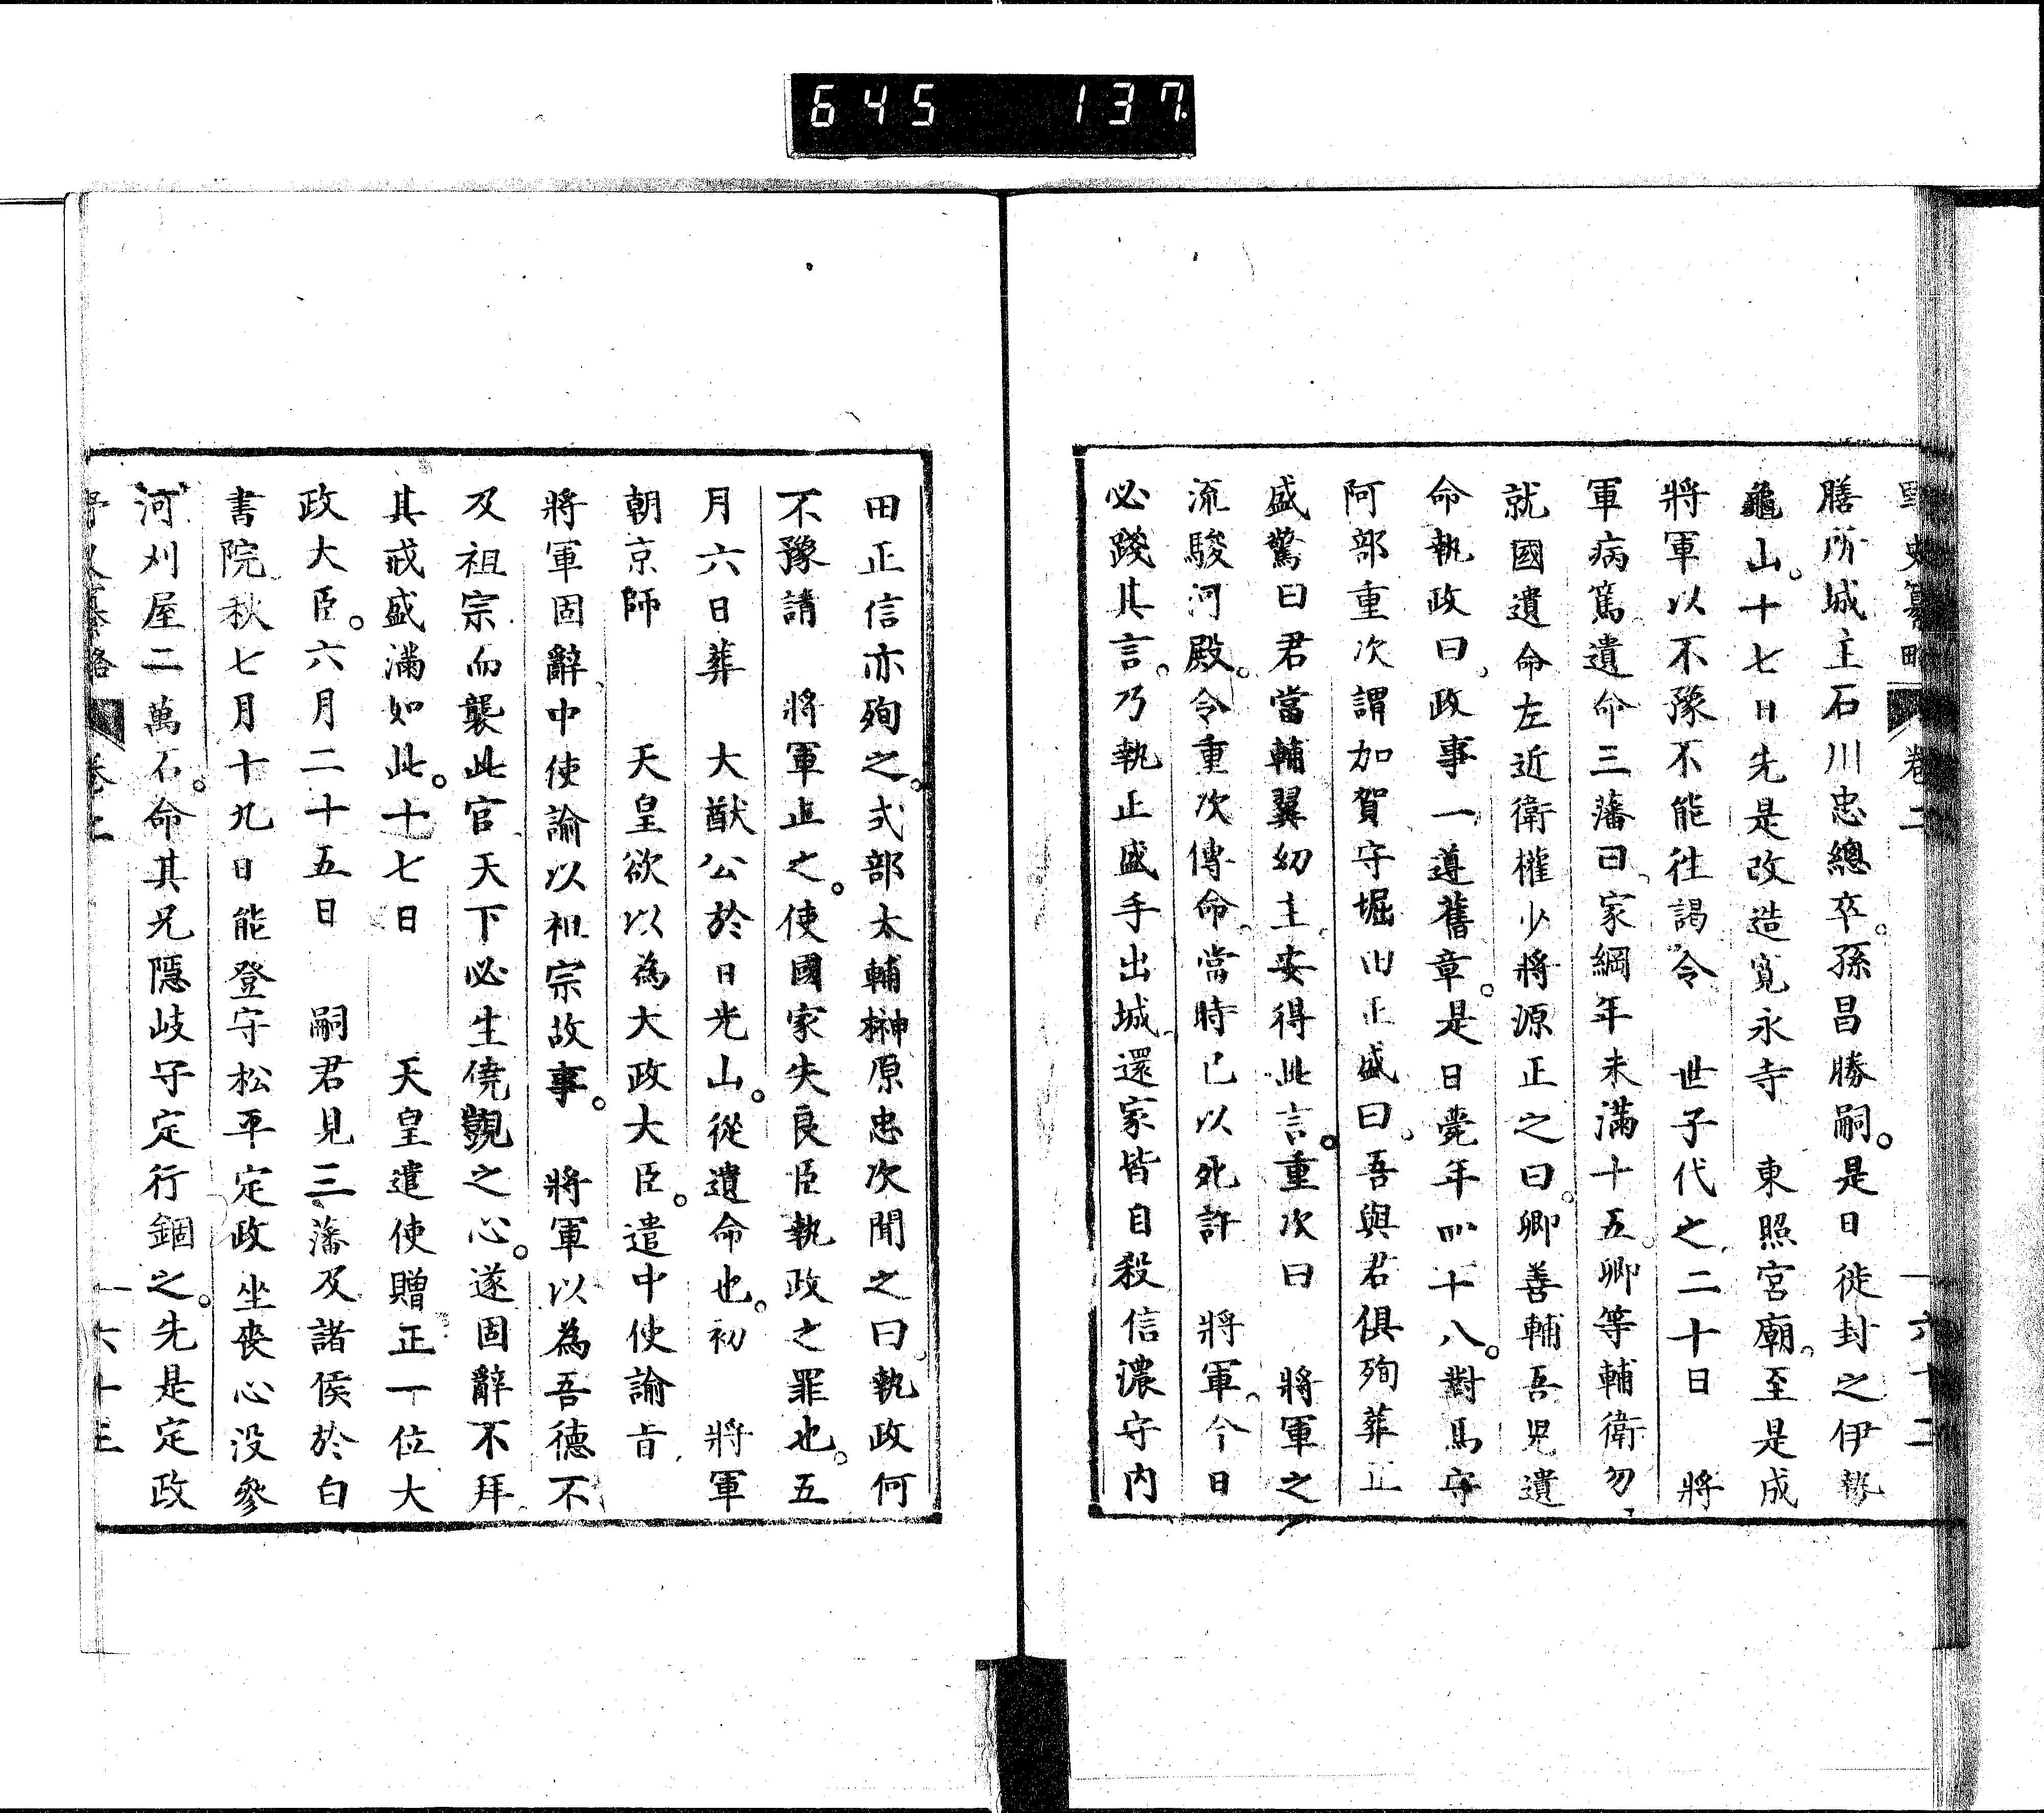 645 137
野史纂略 卷二 一六十二
膳所城主石川忠總卒。孫昌勝嗣。是日徙封之伊勢
龜山。十七日先是改造寬永寺 東照宮廟。至是成
將軍以不豫不能往謁令 世子代之二十日 將
軍病篤遺命三藩曰家綱年未滿十五卿等輔衛勿
就國遺命左近衛權少將源正之曰卿善輔吾兒遺
命執政曰政事一遵舊章。是日薨年四十八。對馬守
阿部重次謂加賀守堀田正盛曰吾與君俱殉葬正
盛驚曰君當輔翼幼主安得此言。重次曰 將軍之
流駿河殿。令重次傳命當時已以死許 將軍。今日
必踐其言。乃執正盛手出城還家皆自殺信濃守内
田正信亦殉之。式部太輔榊原忠次聞之曰執政何
不豫請 將軍止之。使國家失良臣執政之罪也。五
月六日葬 大猷公於日光山。從遺命也。初 將軍
朝京師 天皇欲以為大政大臣。遣中使諭旨
將軍固辭中使諭以祖宗故事。 將軍以為吾德不
及祖宗而襲此官天下必生僥覬之心。遂固辭不拜
其戒盛滿如此。十七日 天皇遣使贈正一位大
政大臣。六月二十五日 嗣君見三藩及諸侯於白
書院秋七月十九日能登守松平定政坐喪心没參
河刈屋二萬石。命其兄隱岐守定行錮之。先是定政
野史纂略 卷二 一六十三